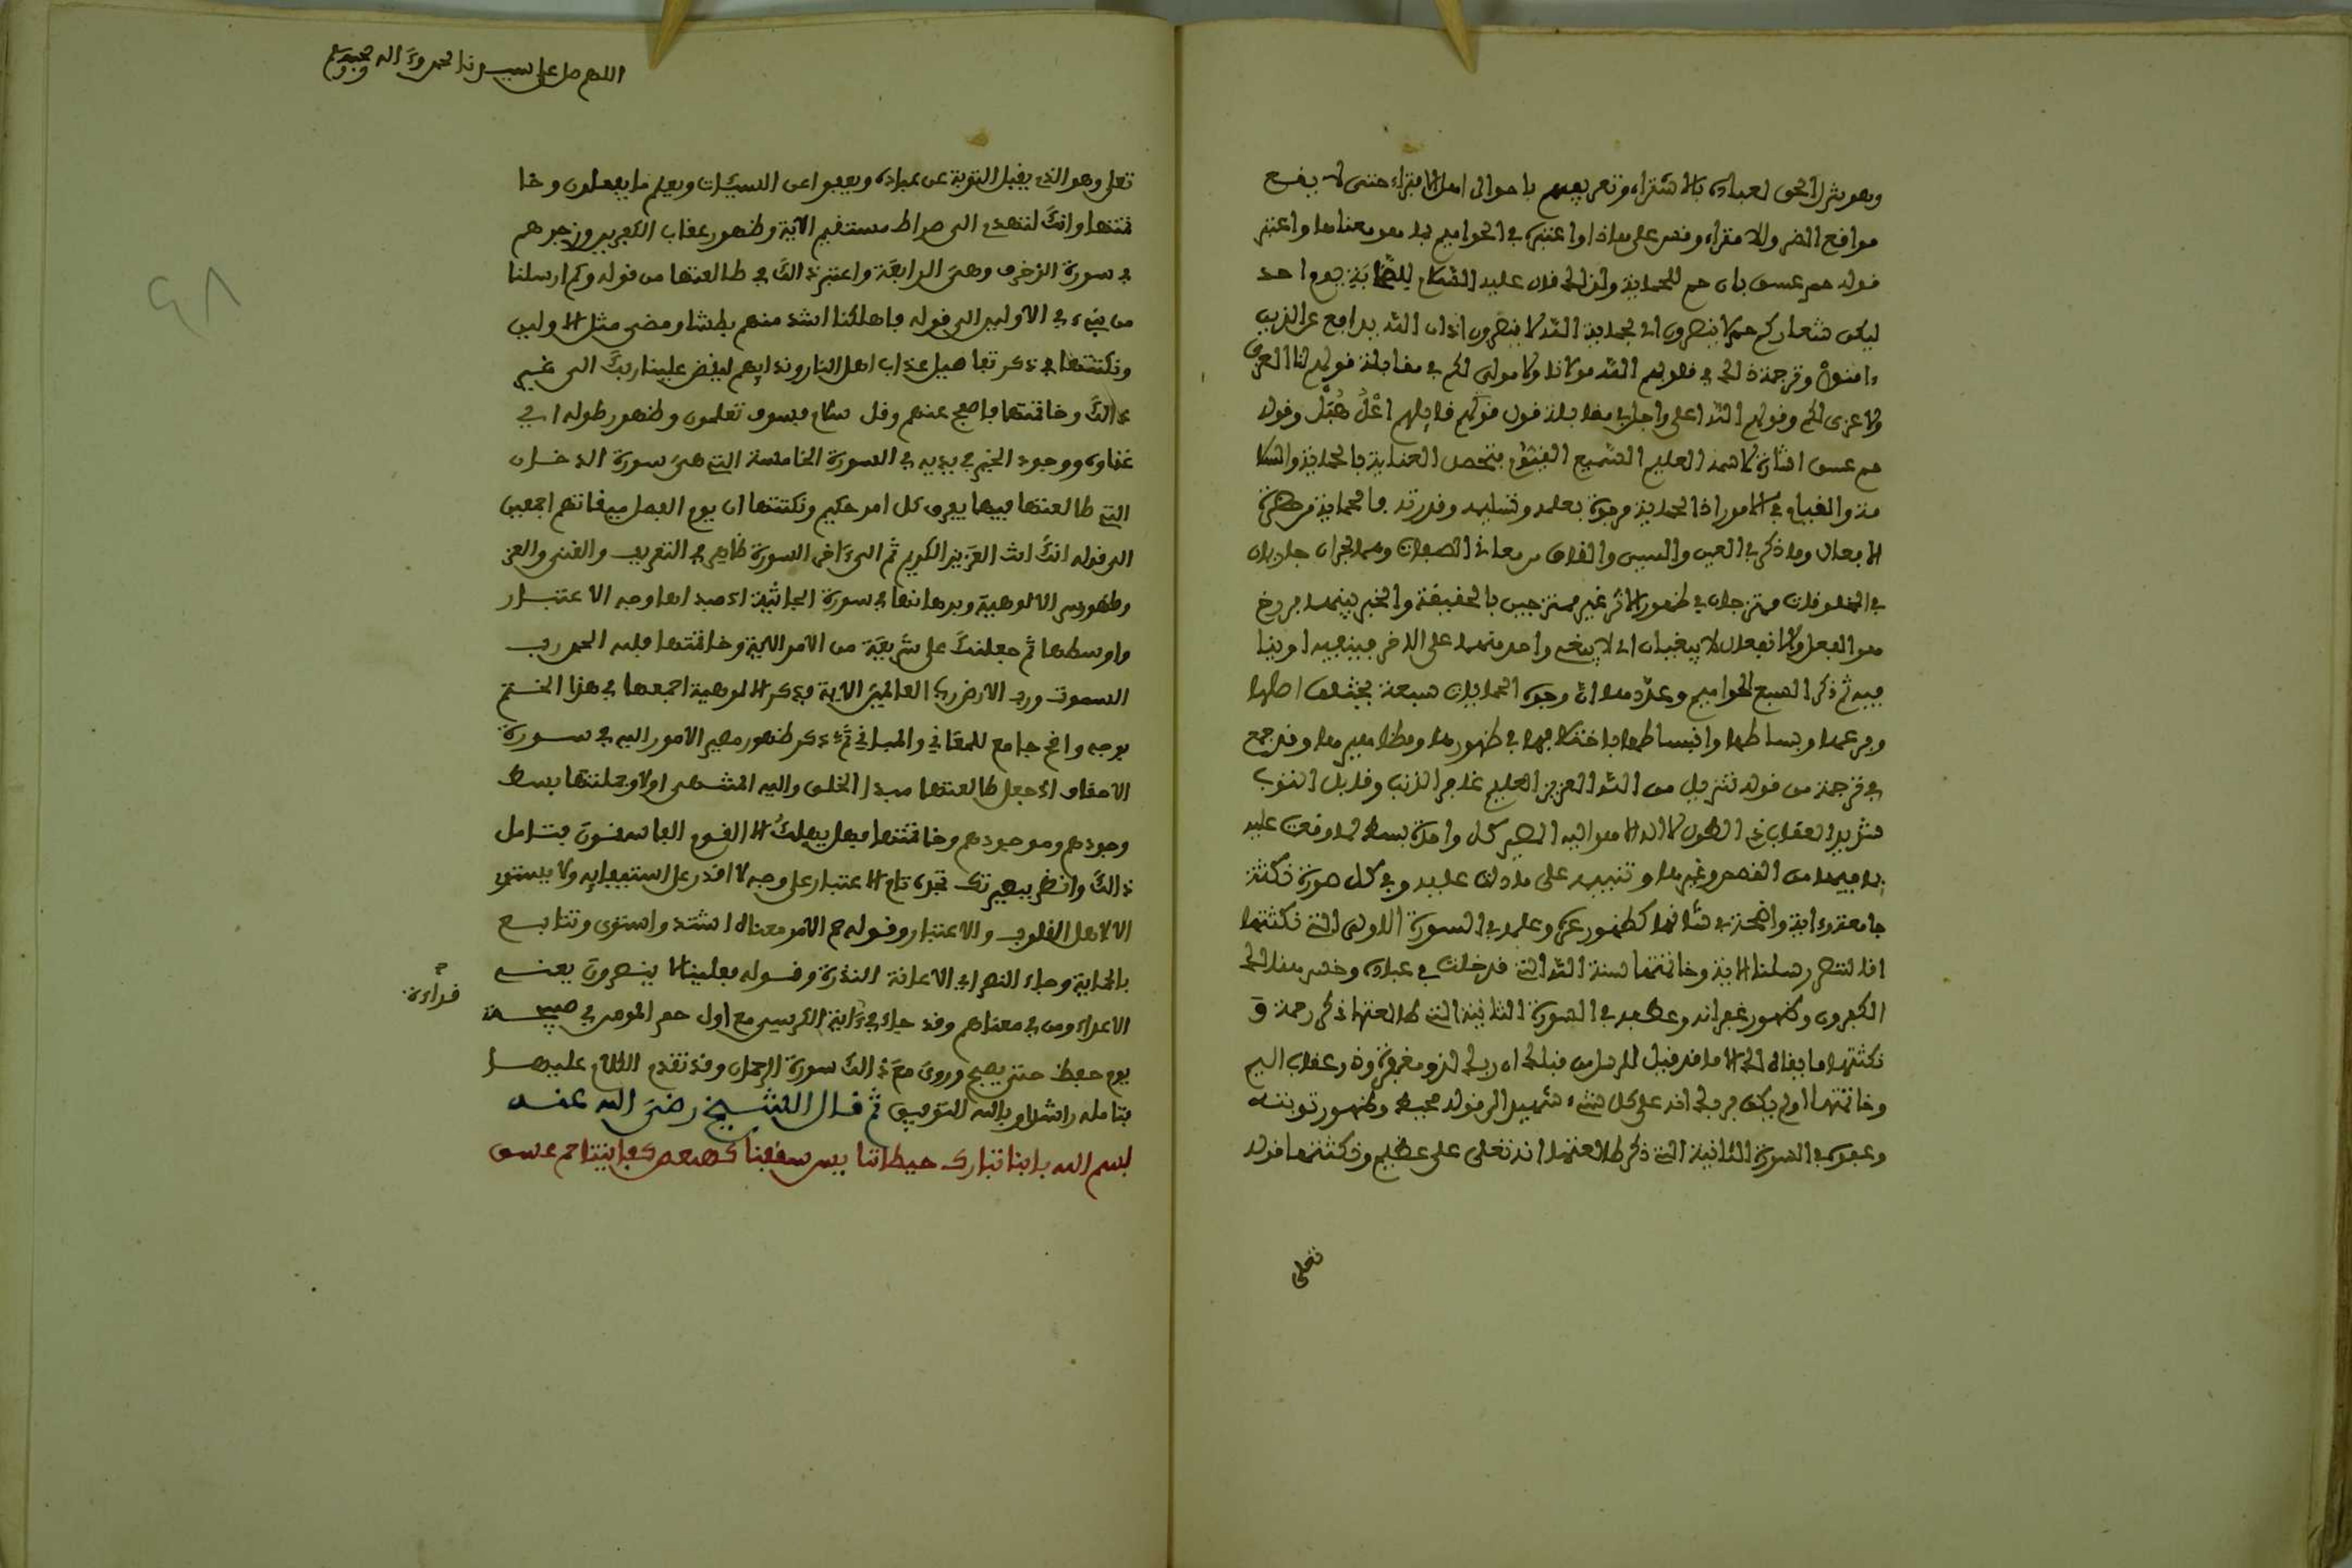 وهو يشرك الحق لعباده بالاشتراء وتعريبهم باحوال اهل الافتراء حتى لا يفع
موافع الضر والافتراء وفس على هاذا واعتبره في الحواميم بما هو معناها واعتبر
فوله حم عسق بان حم للحماية ولذلك فال عليه السلام للصحابة يوم احد
ليكن شعاركم حم لا ينصرون اي بحماية الله لا ينصرون اذ ان الله يدابع عن الذين
ءامنوا وترجمة ذلك في فولهم الله مولانا ولا مولى لكم في مفابلة فولهم لنا العزى
ولا عزى لكم وفولهم الله اعلى واجل في مفابلة فول فوكهم فايلهم اعل هبل وفوله
حم عسق اشارة لاسمه العليم السميع بتحصل العناية بالحماية والسلا
مة والفيام في الامور اذ الحماية موجودة بعلمه وتسليمه وفدرته بالحماية من حضرة
الابعال وما ذكر في العين والسين والفاف من معاني الصفات وهما بحران جاريان
في المخلوفات ممتزجان في ظهور الاثر غير ممتزجين بالحفيفة والخبر بينهما برزخ
هو الفعل والانبعال لا يبغيان اي لا يبغي واحد منهما على الاخر
فيه ثم ذكر السبع الحواميم وعددها لان وجوه الحمايات سبعة بحسب اصلها
وبرعها وبساطها وانبساطها باختلابها في ظهورها ومظاهرها وفد جمع
في ترجمة من فوله تنزيل من الله العزيز العليم غابر الذنب وفابل التوب
شديد العفاب ذي الطول لا اله الا هو اليه المصير كل واحدة بسط لما وفعت عليه
بما فيها من الفصص وغيرها وتنبيه على ما دلت عليه وفي كل صورة نكتة
جامعة وءاية واضحة في شانها كظهور عزه وعلمه في السورة الاولى التي نكتتها
انا لننصر رسلنا الاية وخاتمتها سنة الله التي فد خلت في عباده وخسر هنالك
الكبرون وكظهور غبرانه وعطفه في السورة الثانية التي طالعتها ذكر رحمة و
نكتتها ما يفال لك الا ما فد فيل للرسل من فبلك ان ربك لذو مغبرة وذو عفاب اليم
وخاتمتها اولم يكف بربك انه على كل شيء شهيد الى فوله محيط وظهور توبته
وعبوه في السورة الثانية التي ذكر طالعتها انه تعلى علي عظيم ونكتتها فوله
تعلى
اللهم صل على سيدنا محمد وءاله وصحبه وسلم
تعلى وهو الذي يفبل التوبة عن عباده ويعبوا عن السيئات ويعلم ما يبعلون وخا
تمتها وانك لتهدي الى صراط مستفيم الآية وظهور عفاب الكبرين وزجرهم
في سورة الزخرف وهي الرابعة واعتبر ذالك في طالعتها من فوله وكم ارسلنا
من نبيء في الاولين الى فوله باهلكنا اشد منهم بطشا ومضى مثل الاولين
ونكتتها في ذكر تباصيل عذاب اهل النار وندايهم ليفض علينا ربك الى غير
ذالك وخاتمتها باصبح عنهم وفل سلام فسوف تعلمون وظهور طوله اي
غناه ووجود الخير في يديه في السورة الخامسة التي هي سورة الدخان
التي طالعتها فيها يبرق كل امر حكيم ونكتتها ان يوم البصل ميفاتهم اجمعين
الى فوله انك انت العزيز الكريم ثم الى ءاخر السورة ظاهر في التعريف والغنى والعز
وظهور سر الالوهية وبرهانها في سورة الجاثية اذ مبداها وجه الاعتبار
واوسطها ثم جعلنك على شريعة من الامر الاية وخاتمتها فلله الحمد رب
السموت ورب الارض رب العالمين الاية وذكر الالوهية اجمعها في هذا الختم
بوجه واضح جامع للمعاني والمباني ثم ذكر ظهور مصير الامور اليه في سورة
الاحفاف اذ جعل طالعتها مبدا الخلق واليه المنتهى اولا وجملتها بسط
وجودهم وموجودهم وخاتمتها فهل يهلك الا الفوم الباسفون فتامل
ذالك وانظر ببصيرتك تجده تام الاعتبار على وجه لا افدر على استيبايه ولا يستوي
الا لاهل الفلوب والاعتبار وفوله حم الامر معناه اشتد واستوى وتتابع
بالحماية وجاء النصر اي الاعانة النذرة وفوله بعلينا لا ينصرون يعني
الاعداء ومن في معناهم وفد جاء في فراءة ءاية الكرسي مع اول حم المومن في صبيحة
يوم حبظ حتى يصبح وروي مع ذالك سورة الرحمان وفد تفدم الكلام عليها
بتامله راشدا وبالله التوبيق ثم فال الشيخ رضي الله عنه
بسم الله بابنا تبارك حيطاننا يس سفبنا كهيعص كبايتنا حم عسق